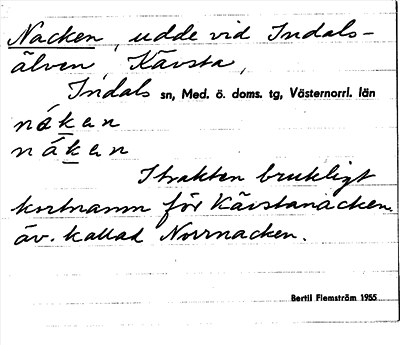 Nacken, udde vid Indals-
älven, Kävsta,
Indals sn, Med. ö. doms. tg, Västernorrl. län
náken
nàken
I trakten brukligt
kortnamn för Kävstanacken,
äv. kallad Norrnacken.
Bertil Flemström 1955